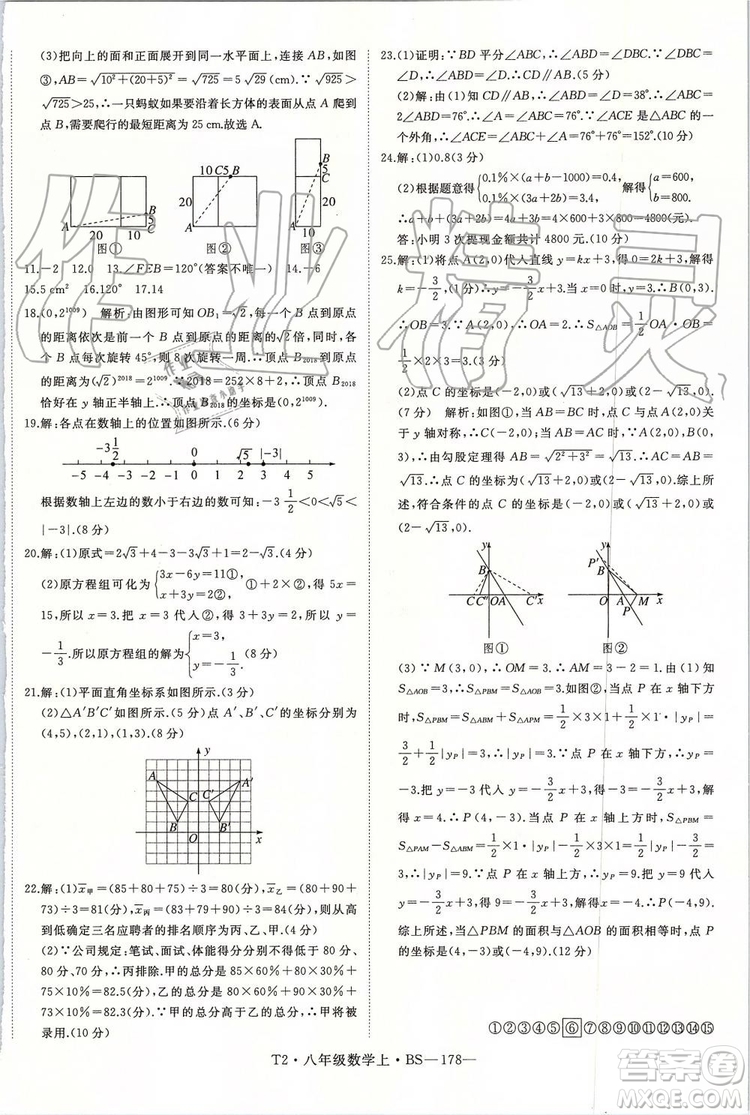 (3)把向上的面和正面展开到同一水平面上,连接 AB,如图
③,AB=√(10²+(20+5)²)=√725=5√29(cm).∵√925>
√725>25,∴一只蚂蚁如果要沿着长方体的表面从点 A 爬到
点 B,需要爬行的最短距离为 25 cm.故选 A.
B 5 C 20 10 A 图①
10 C 5 B 20 A 图②
B 5 C 20 A 10 图③
11.-2 12.0 13.∠FEB=120°(答案不唯一) 14.-6
15.5 cm² 16.120° 17.14
18.(0,2¹⁰⁰⁹) 解析:由图形可知 OB₁=√2,每一个顶点到原点
的距离依次是前一个顶点到原点的距离的√2倍,同时,各个
顶点每次旋转 45°,则 8 次旋转一周.∴顶点 B₂₀₁₈ 到原点的
距离为(√2)²⁰¹⁸=2¹⁰⁰⁹.∵2018=252×8+2,∴顶点 B₂₀₁₈
恰好在 y 轴正半轴上.∴顶点 B₂₀₁₈ 的坐标是(0,2¹⁰⁰⁹)
19.解:各点在数轴上的位置如图所示.
-3 1/2 √5 |-3|
-5 -4 -3 -2 -1 0 1 2 3 4 5
根据数轴上左边的数小于右边的数可知:-3 1/2<0<√5<
|-3|.(8 分)
20.解:(1)原式=2√3+4-3-3√3=1-√3.(4 分)
(2)原方程组可化为{3x-6y=11①, 2x+3y=5②, ①+②×2,得 7x=21
15,所以 x=3.把 x=3 代入②,得 2×3+3y=5,所以 y=
-1/3.所以原方程组的解为{x=3, y=-1/3. (8 分)
21.解:(1)平面直角坐标系如图所示.
(2)△A′B′C′如图所示.(5 分)点 A′、B′、C′的坐标分别为
(4,5),(2,1),(1,3).(8 分)
y A A′ C C′ B B′ O x
22.解:(1)x̄甲=(85+80+75)÷3=80(分),x̄乙=(80+90+
73)÷3=81(分),x̄丙=(83+79+90)÷3=84(分),则从高
到低确定三名应聘者的排名顺序为丙、乙、甲.(4 分)
(2)∵公司规定:笔试、面试、体能得分分别不得低于 80 分,
80 分,70 分,∴丙排除.甲的总分是 85×60%+80×30%+
75×10%=82.5(分),乙的总分是 80×60%+90×30%+
73×10%=82.3(分).∵甲的总分高于乙的总分,∴甲将被
录用.(10 分)
23.(1)证明:∵BD 平分∠ABC,∴∠ABD=∠DBC.∵∠ABD=
∠D,∴∠DBC=∠D.∴CD∥AB.(5 分)
(2)解:由(1)知 CD∥AB,∴∠ABD=∠D=38°.∴∠ABC=
2∠ABD=76°.∴∠A=∠ABC=76°.∵∠ACE 是△ABC 的一
个外角,∴∠ACE=∠A+∠ABC=76°+76°=152°.(10 分)
24.解:(1)0.8(3 分)
(2)根据题意得{0.1%×(a+b-1000)=0.4, 0.1%×(3a+2b)=3.4, 解得{a=600, b=800.
∴a+b+(3a+2b)=4a+3b=4×600+3×800=4800(元).
答:小明 3 次提现金额共计 4800 元.(10 分)
25.解:(1)将点 A(2,0)代入直线 y=kx+3,得 0=2k+3,解得
k=-3/2,(1 分)∴y=-3/2x+3.当 x=0 时,y=3.∴B(0,3).
∴OB=3.∵A(2,0),∴OA=2.∴S△AOB=1/2OA·OB=
1/2×2×3=3.(4 分)
(2)点 C 的坐标是(-2,0)或(2+√13,0)或(2-√13,0).
(7 分) 解析:如图①,当 AB=BC 时,点 C 与点 A(2,0)关
于 y 轴对称,∴C(-2,0)符合题意;当 AB=AC 时,∵A(2,0),B(0,
3),∴由勾股定理得 AB=√(2²+3²)=√13.∴AC=AB=
√13.∴点 C 的坐标是(2+√13,0)或(2-√13,0).综上所
述,符合条件的点 C 的坐标是(-2,0)或(2+√13,0)或(2
-√13,0).
y B C′ C″ O A C x 图①
y P′ B O A M P x 图②
(3)∵M(3,0),∴OM=3.∴AM=3-2=1.由(1)知
S△AOB=3,∴S△PBM=S△AOB=3.如图②,当点 P 在 x 轴下方时,
S△PBM=S△PAM+S△ABM=1/2×3×1+1/2×1·|yP|=
3/2+1/2|yP|=3,∴|yP|=3.∵点 P 在 x 轴下方,∴yP=
-3.把 y=-3 代入 y=-3/2x+3,得-3=-3/2x+3,解得
x=4.∴P(4,-3).当点 P 在 x 轴上方时,S△PBM=
S△PAM-S△ABM=1/2×1×|yP|-1/2×3×1=1/2|yP|-
3/2=3.∴|yP|=9.∵点 P 在 x 轴上方,∴yP=9.把 y=9
代入 y=-3/2x+3,得 9=-3/2x+3,解得 x=-4.∴P(-4,9).
综上所述,当△PBM 的面积与△AOB 的面积相等时,点 P
的坐标为(4,-3)或(-4,9).(12 分)
①②③④⑤⑥⑦⑧⑨⑩⑪⑫⑬⑭⑮
T2·八年级数学上·BS—178—
作业精灵
答案圈
MXQE.COM